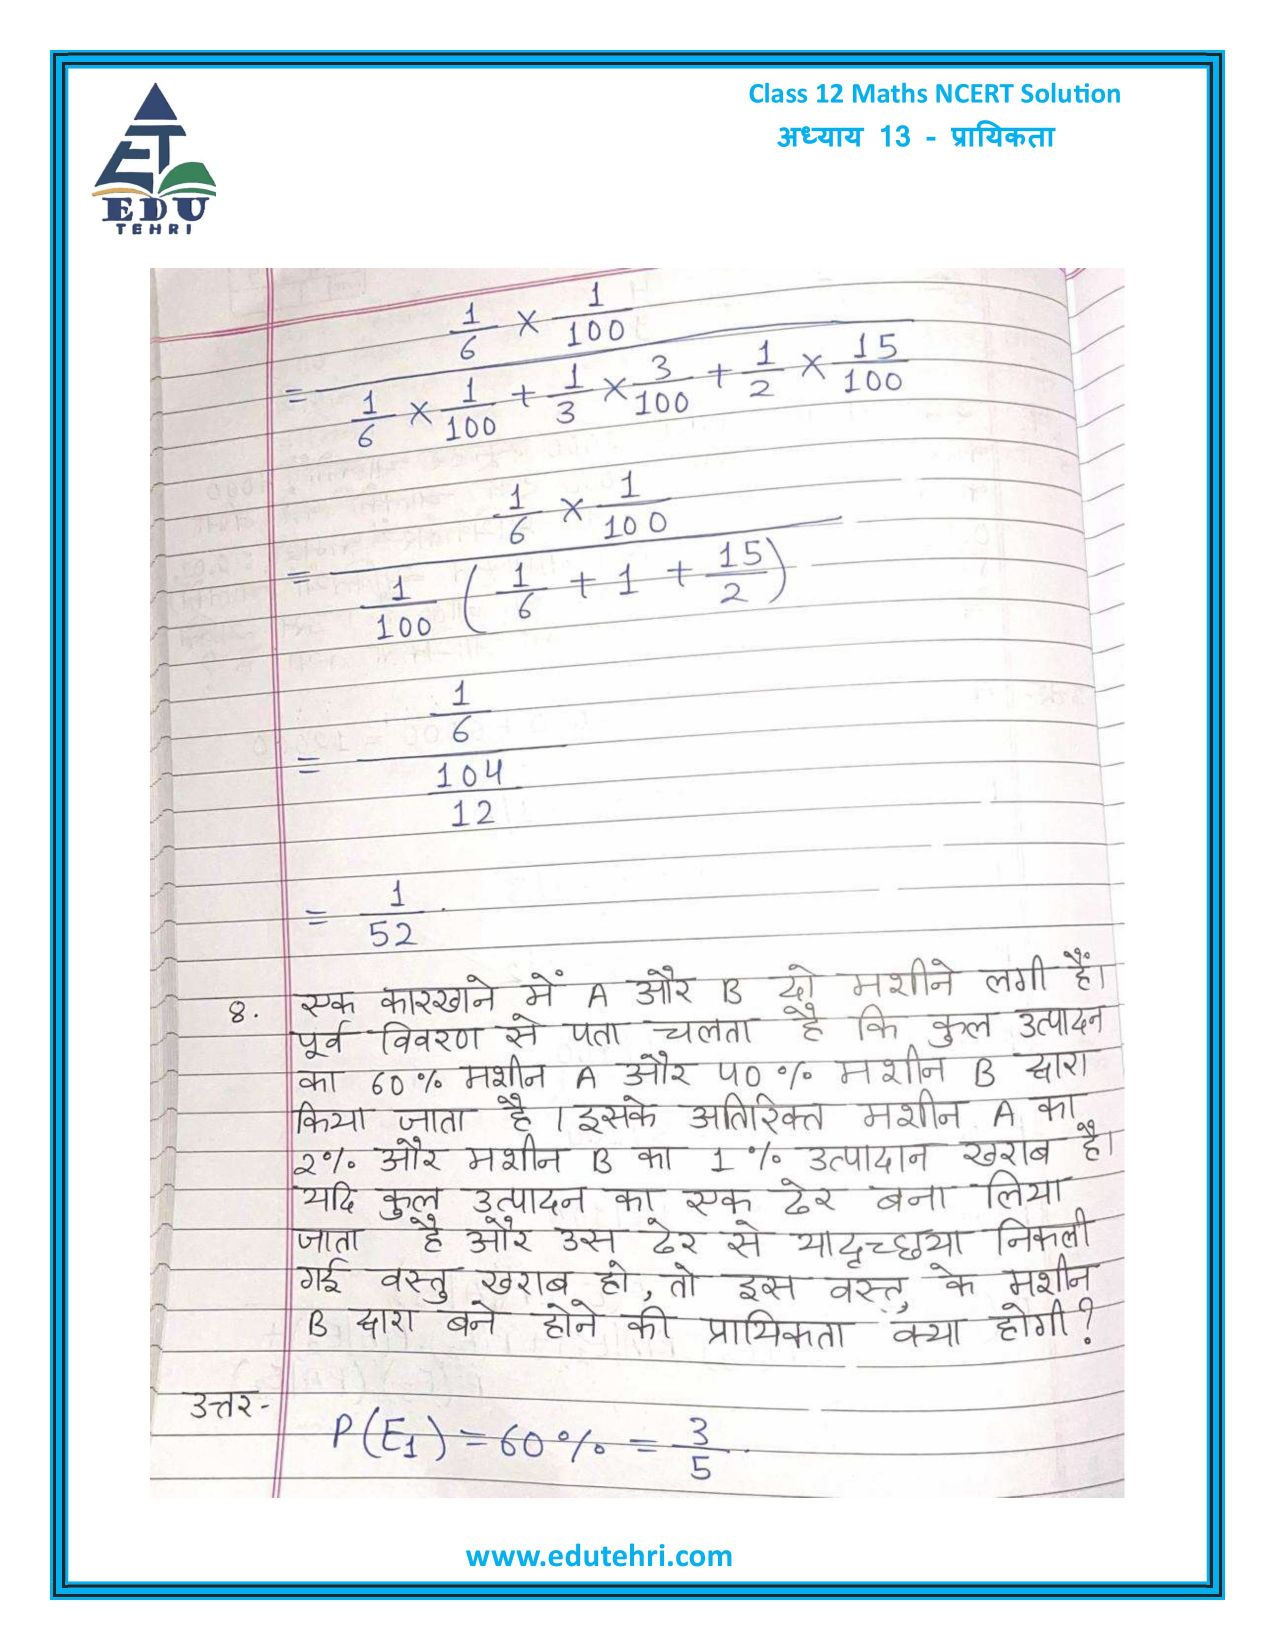 Class 12 Maths NCERT Solution
अध्याय 13 - प्रायिकता
EDU
TEHRI
1/6 × 1/100
= 1/6 × 1/100 + 1/3 × 3/100 + 1/2 × 15/100
1/6 × 1/100
= 1/100 ( 1/6 + 1 + 15/2 )
1/6
=
104/12
= 1/52 .
8. एक कारखाने में A और B दो मशीने लगी हैं।
पूर्व विवरण से पता चलता है कि कुल उत्पादन
का 60% मशीन A और 40% मशीन B द्वारा
किया जाता है । इसके अतिरिक्त मशीन A का
2% और मशीन B का 1% उत्पादान खराब है।
यदि कुल उत्पादन का एक ढेर बना लिया
जाता है और उस ढेर से यादृच्छया निकली
गई वस्तु खराब हो, तो इस वस्तु के मशीन
B द्वारा बने होने की प्रायिकता क्या होगी?
उत्तर-
P(E₁) = 60% = 3/5 .
www.edutehri.com